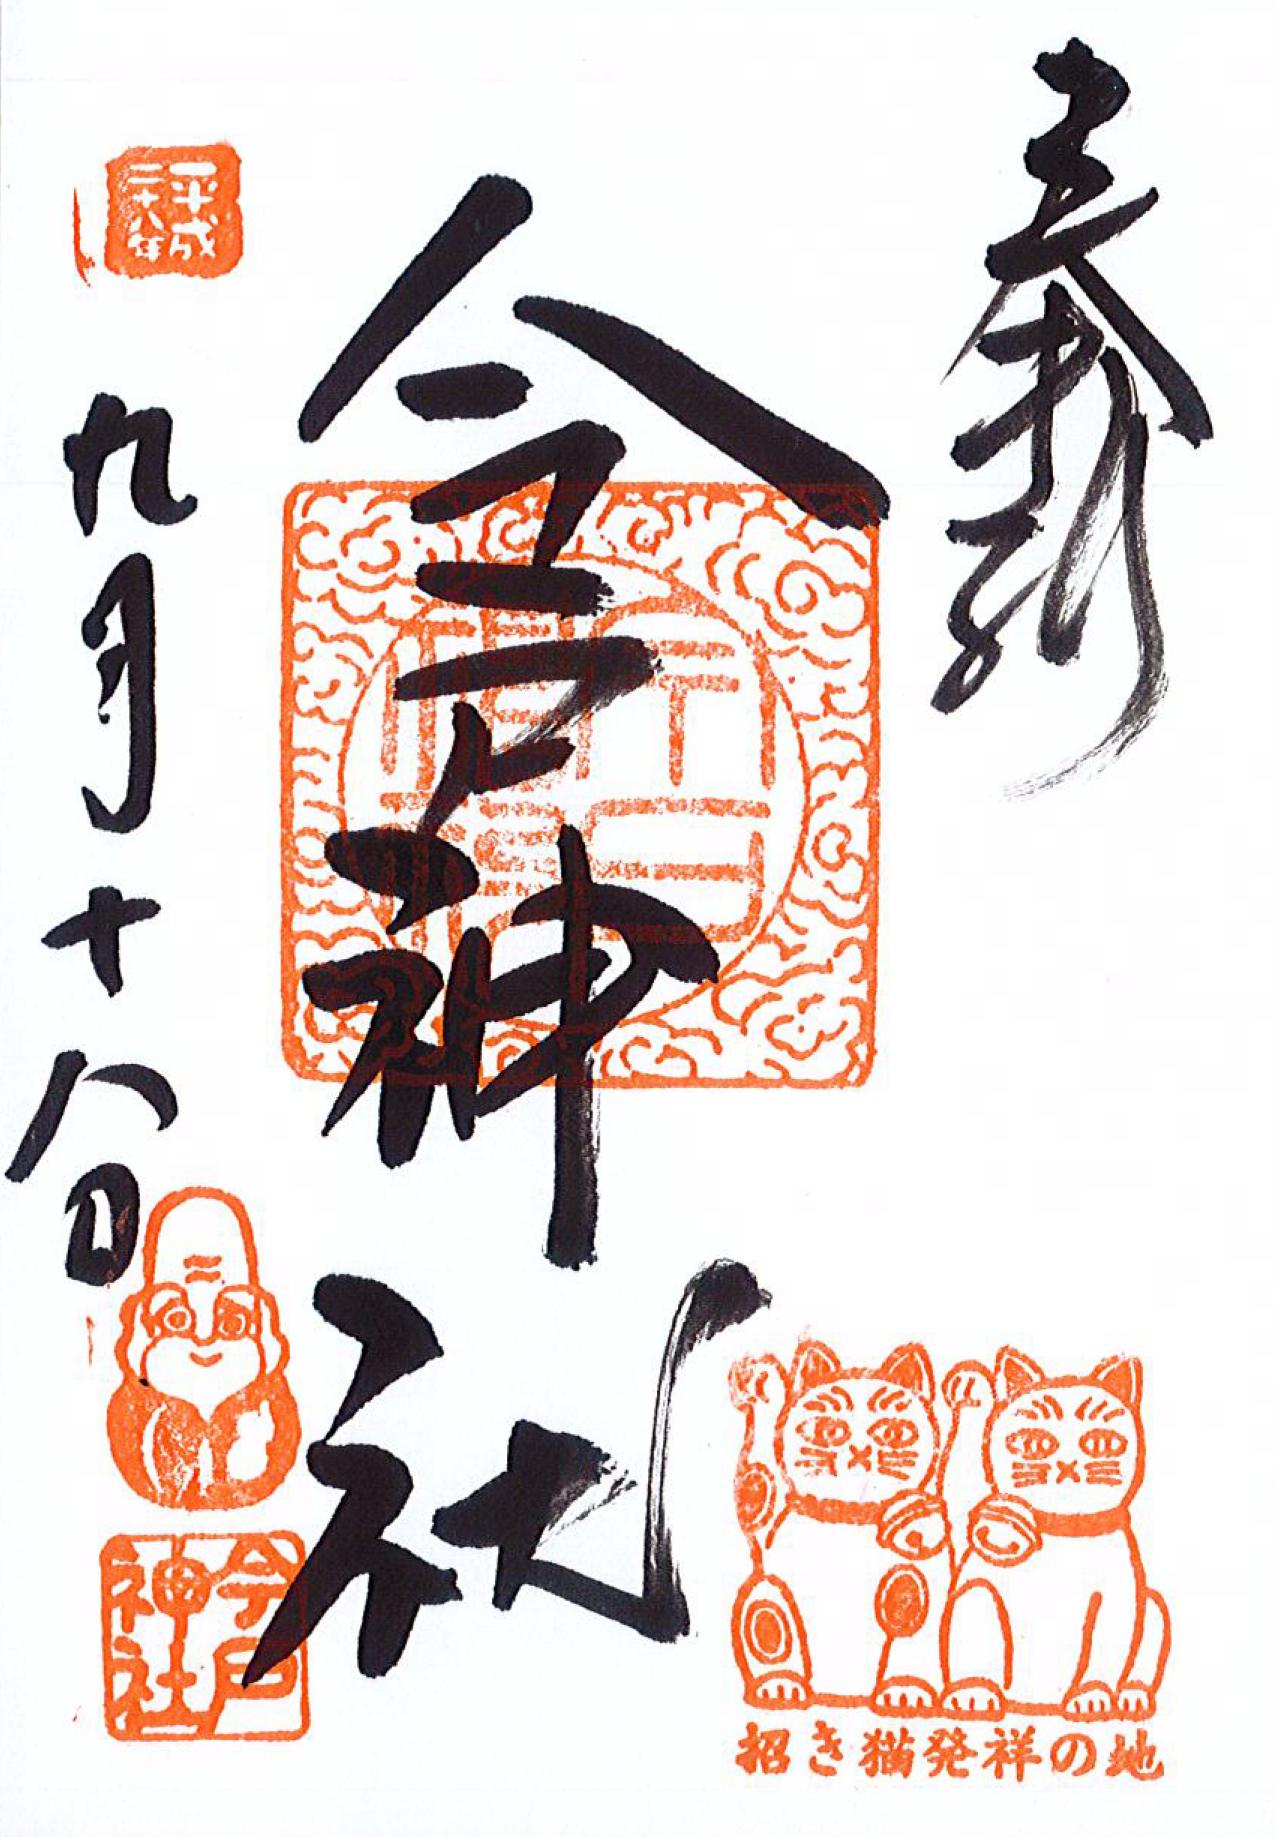 奉拝
今戸神社
平成
二十八年
九月十八日
今戸
神社
招き猫発祥の地